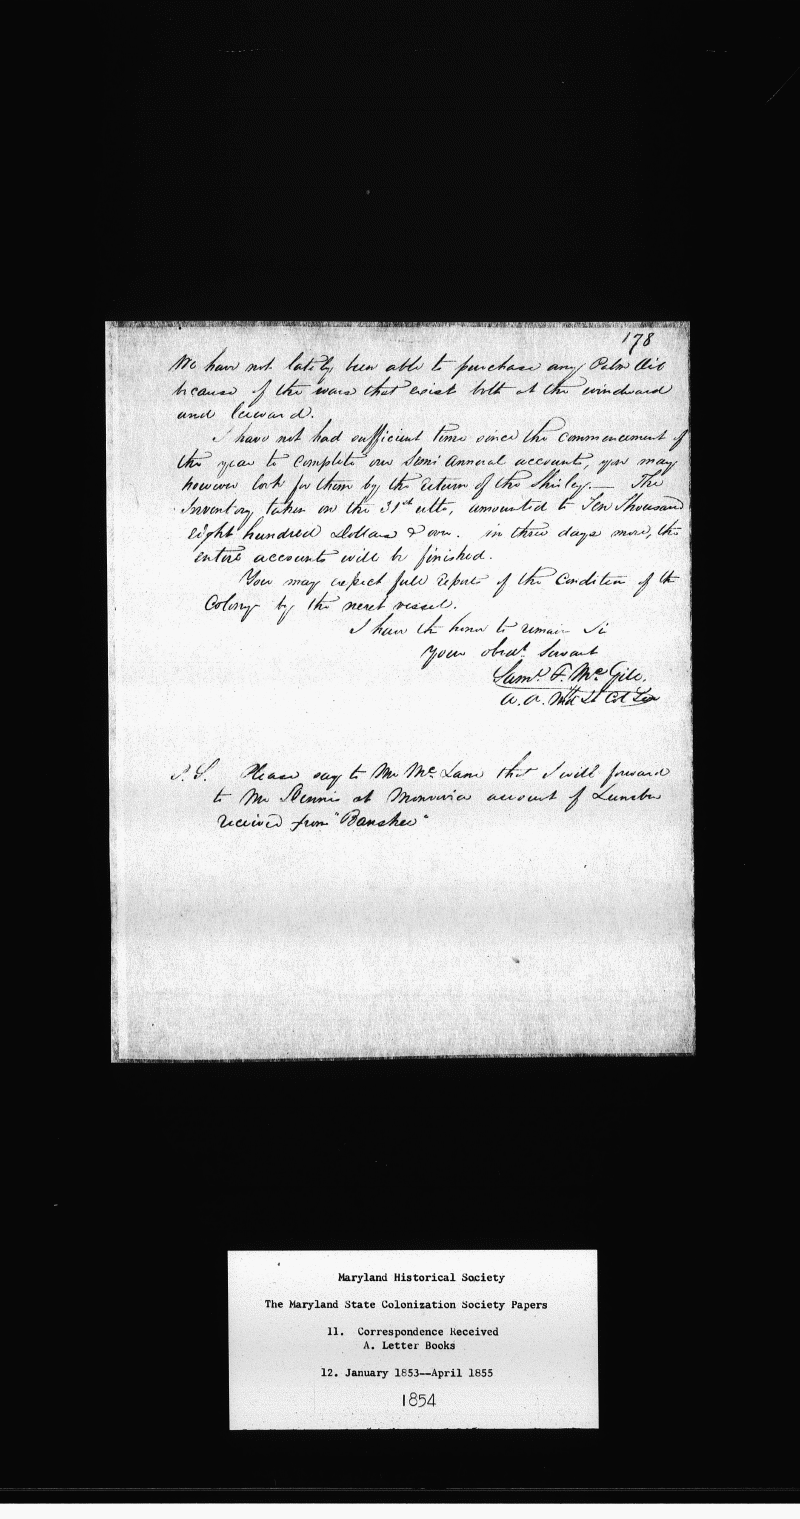 178
We have not lately been able to purchase any Palm Oil
because of the wars that exist both at the windward
and leeward.
I have not had sufficient time since the commencement of
the year to complete our Semi Annual accounts, you may
however look for them by the return of the Shirley. — The
Inventory taken on the 31st ulto, amounted to Ten Thousand
eight hundred Dollars & over. in three days more, the
entire accounts will be finished.
You may expect full reports of the Condition of the
Colony by the next vessel.
I have the honor to remain Sir
Your obedt. Servant
Saml. F. Mc Gill.
A. A. Md St Col
P.S. Please say to Mr Mc Lain that I will forward
to Mr Dennis at Monrovia account of Lumber
received from "Banshee"
Maryland Historical Society
The Maryland State Colonization Society Papers
11. Correspondence Received
A. Letter Books
12. January 1853--April 1855
1854